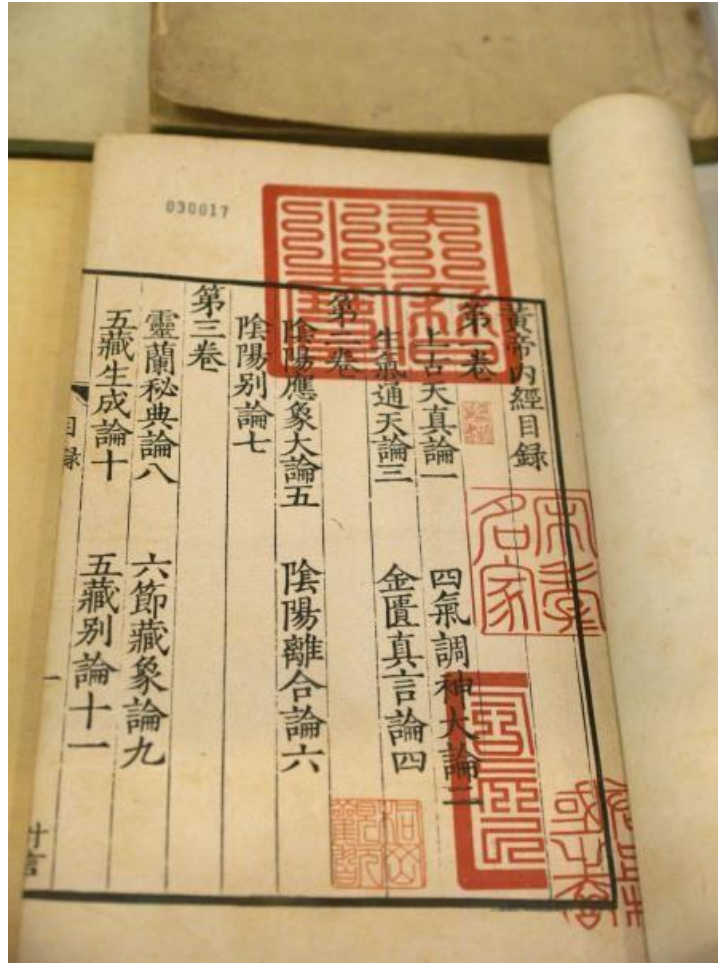 030017
黃帝內經目錄
第一卷
上古天真論一　四氣調神大論二
生氣通天論三　金匱真言論四
第二卷
陰陽應象大論五　陰陽離合論六
陰陽别論七
第三卷
靈蘭秘典論八　六節藏象論九
五藏生成論十　五藏别論十一
目録